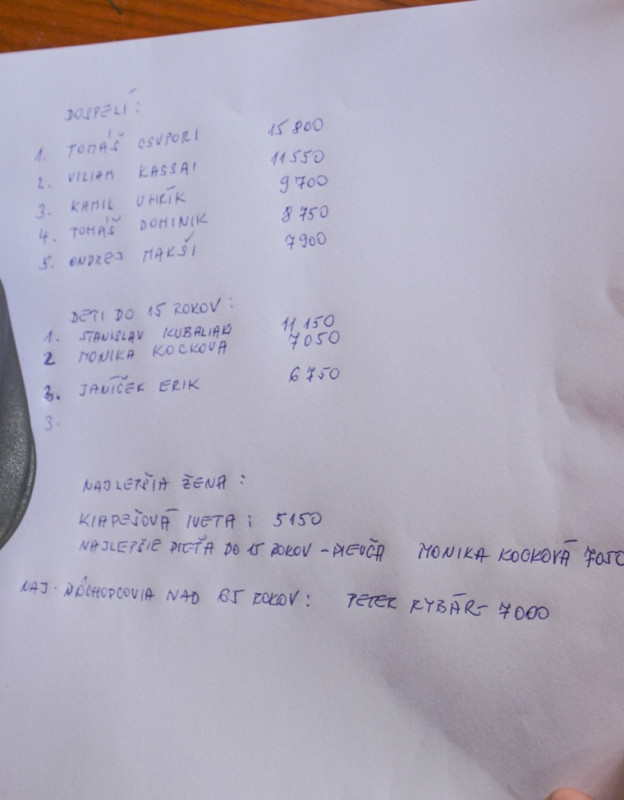 DOSPELÍ:
1. TOMÁŠ CSUPORI 15 800
2. VILIAM KASSAI 11 550
3. KAMIL UHRÍK 9 700
4. TOMÁŠ DOMINIK 8 750
5. ONDREJ MAKŠI 7 900
DETI DO 15 ROKOV:
1. STANISLAV KUBALIAK 11 150
2 MONIKA KOCKOVÁ 7 050
3. JANÍČEK ERIK 6 750
3.
NAJLEPŠIA ŽENA:
KIAPEŠOVÁ IVETA: 5150
NAJLEPŠIE DIEŤA DO 15 ROKOV - DIEVČA MONIKA KOCKOVÁ 7050
NAJ. DÔCHODCOVIA NAD 65 ROKOV: PETER RYBÁR - 7000